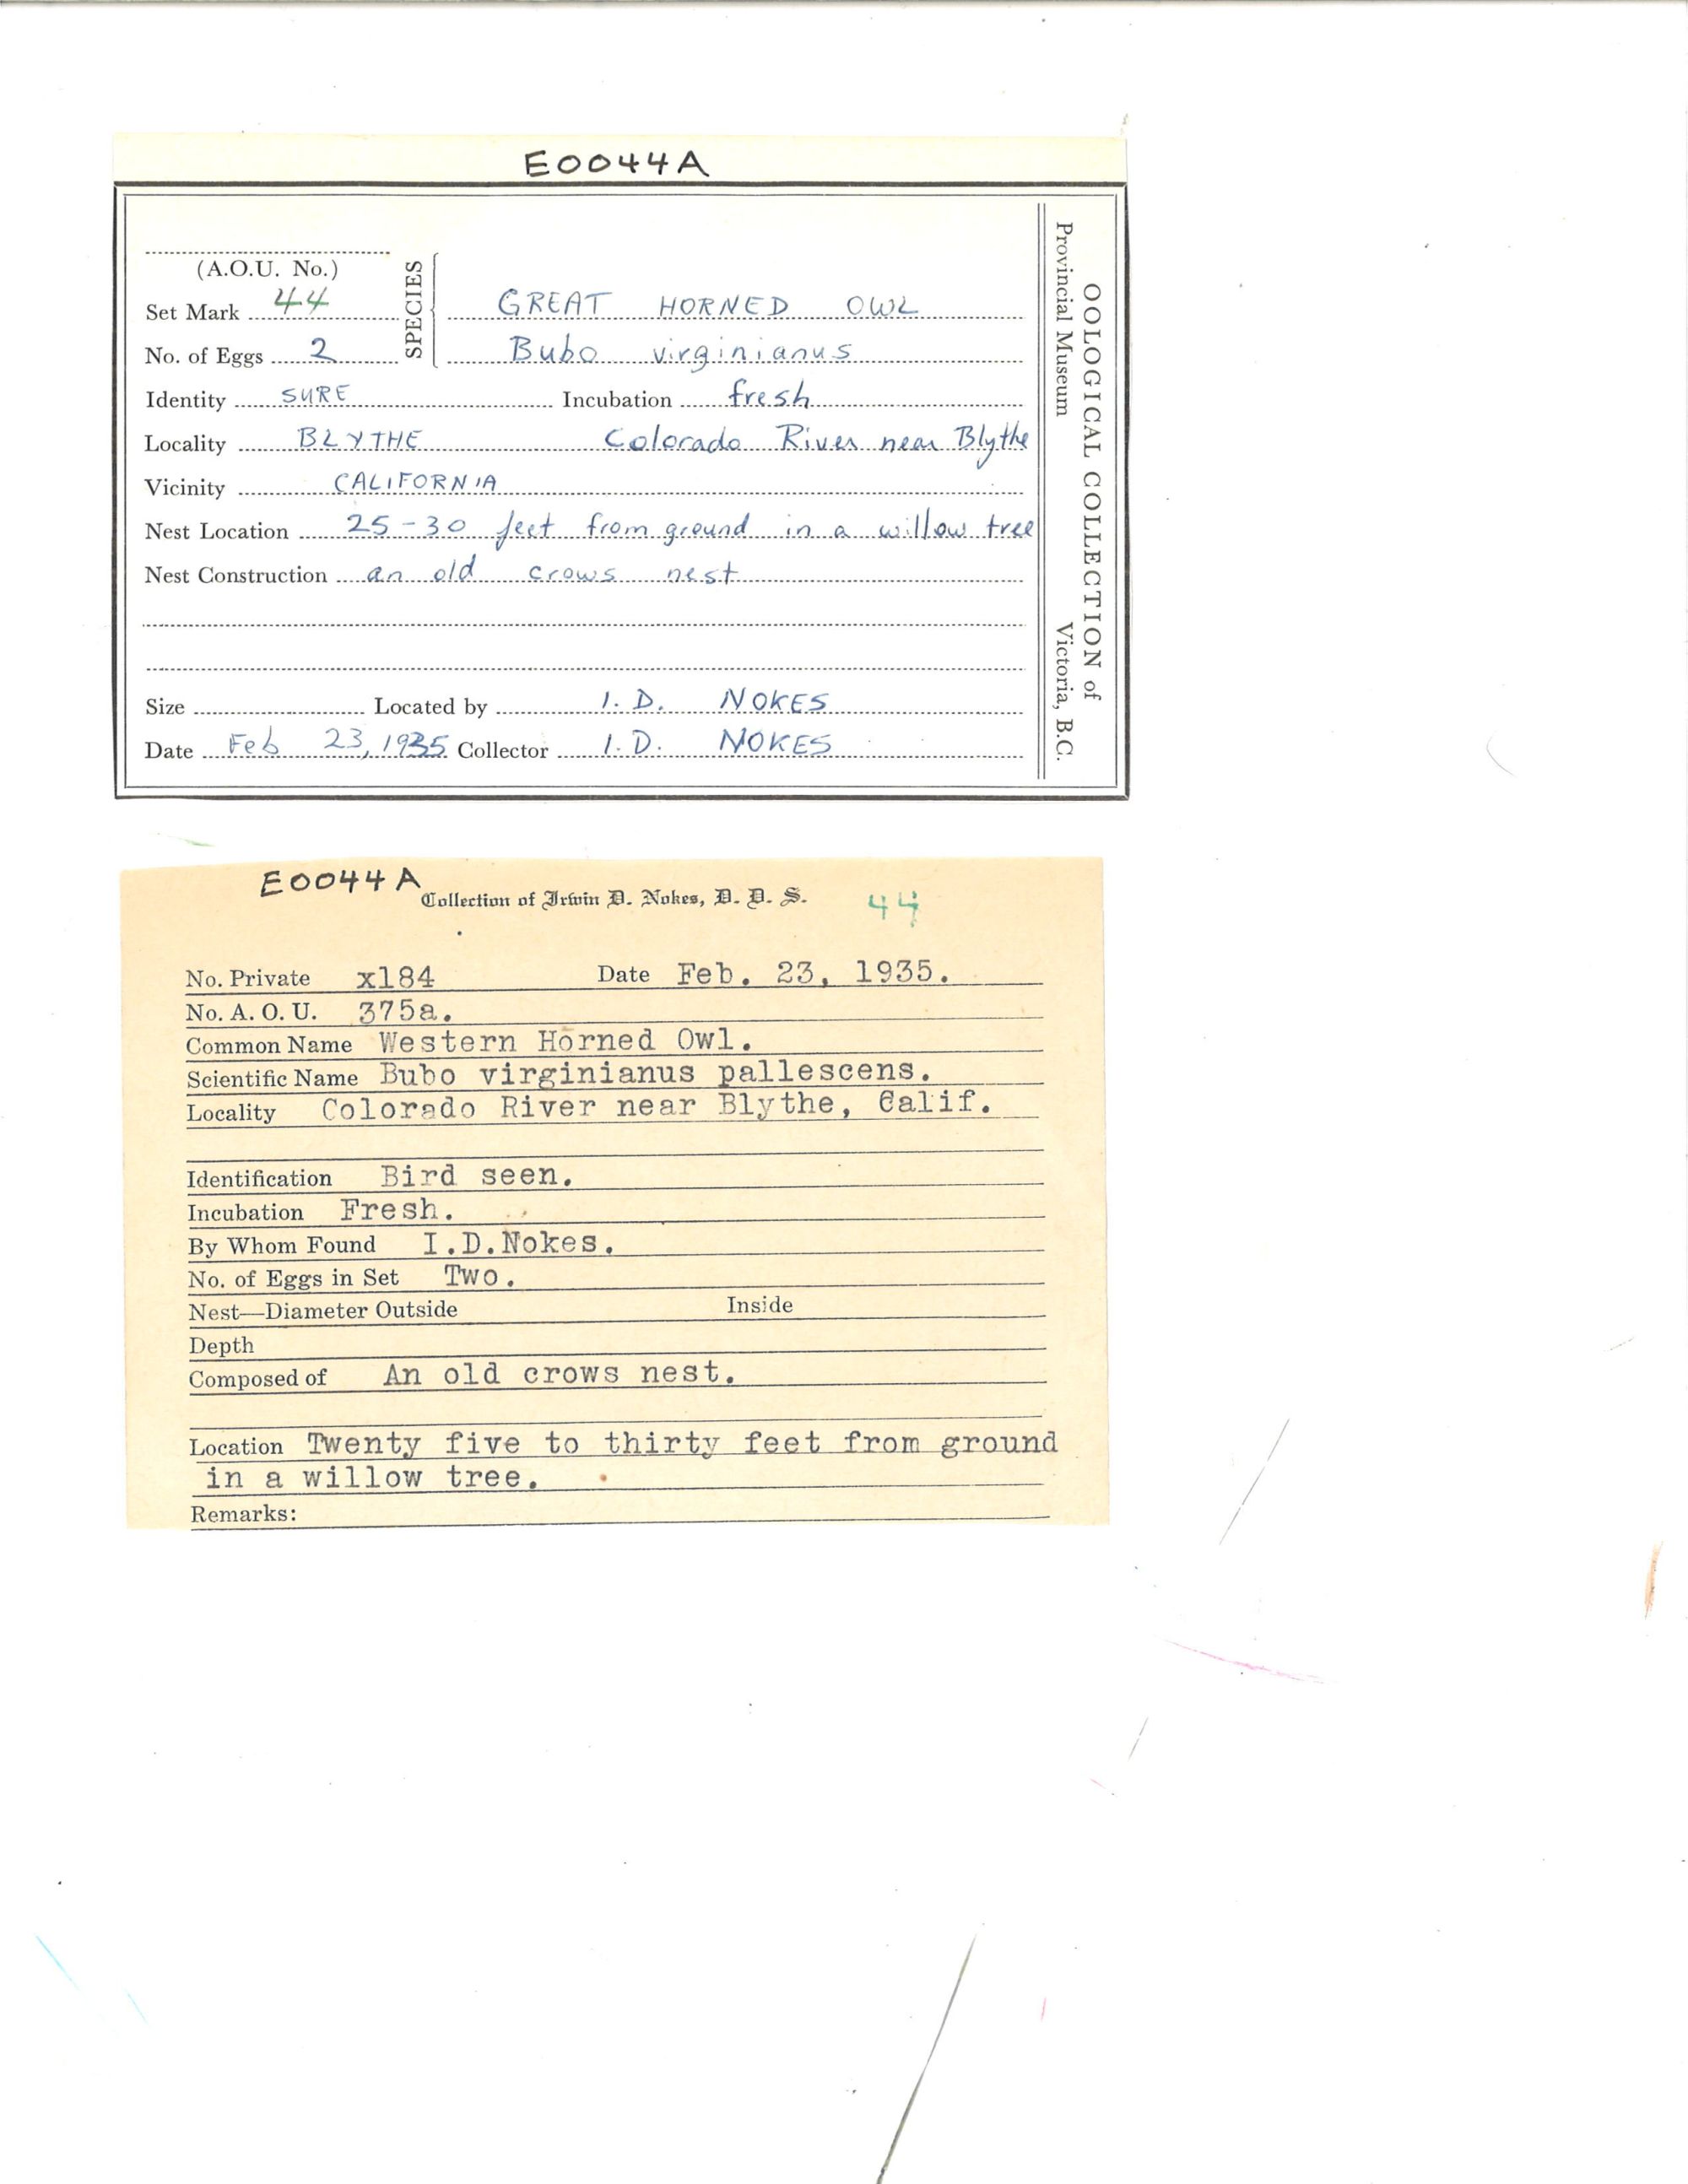 E0044A
(A.O.U. No.)
Set Mark 44
No. of Eggs 2
SPECIES
GREAT HORNED OWL
Bubo virginianus
Identity SURE Incubation fresh
Locality BLYTHE Colorado River near Blythe
Vicinity CALIFORNIA
Nest Location 25-30 feet from ground in a willow tree
Nest Construction an old crows nest
Size Located by I. D. NOKES
Date Feb 23, 1935 Collector I. D. NOKES
OOLOGICAL COLLECTION of
Provincial Museum Victoria, B.C.
E0044A
Collection of Irwin D. Nokes, D. D. S. 44
No. Private x184 Date Feb. 23, 1935.
No. A. O. U. 375a.
Common Name Western Horned Owl.
Scientific Name Bubo virginianus pallescens.
Locality Colorado River near Blythe, Calif.
Identification Bird seen.
Incubation Fresh.
By Whom Found I.D.Nokes.
No. of Eggs in Set Two.
Nest—Diameter Outside Inside
Depth
Composed of An old crows nest.
Location Twenty five to thirty feet from ground
in a willow tree.
Remarks: